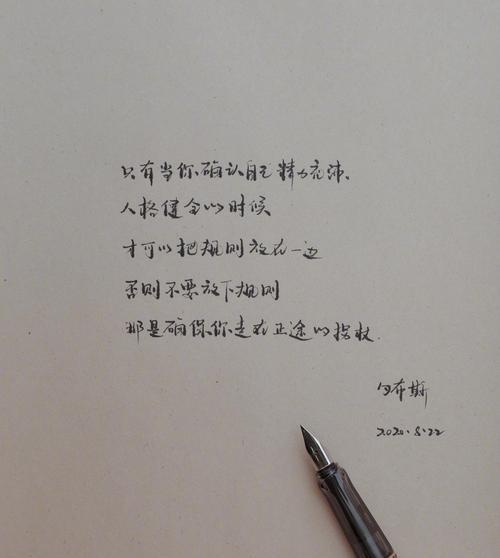 只有当你确认自己精力充沛、
人格健全的时候
才可以把规则放在一边
否则不要放下规则
那是确保你走在正途的拐杖.
布斯
2020.8.22